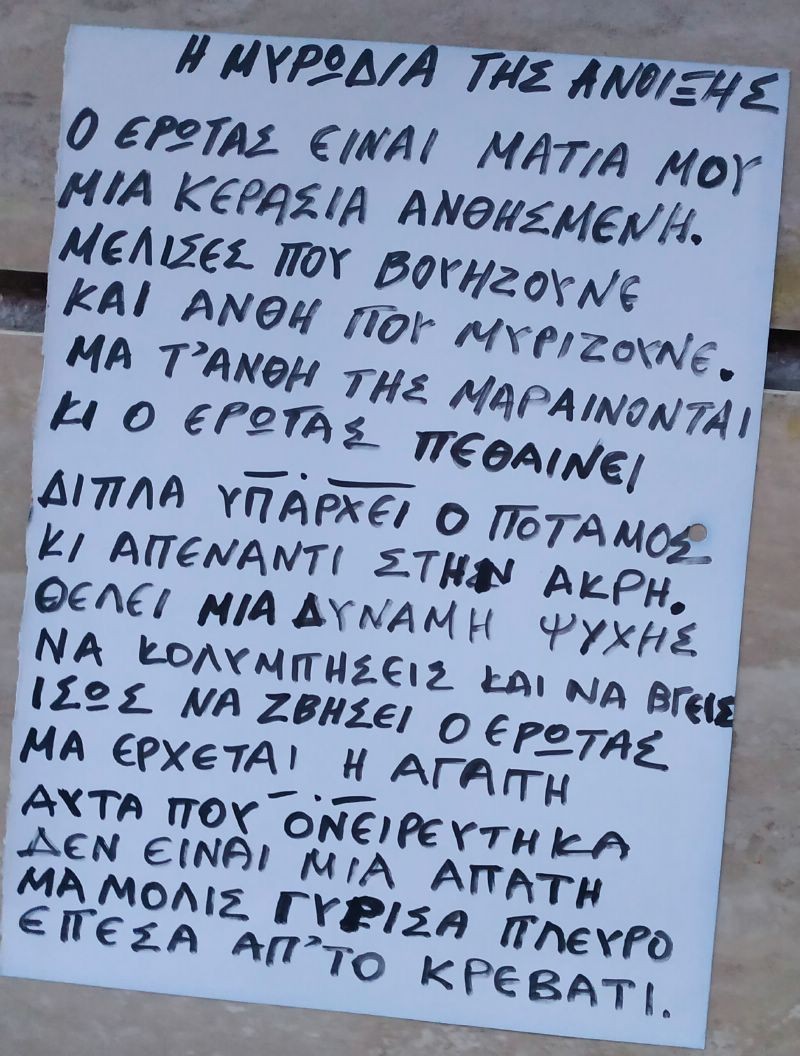 Η ΜΥΡΩΔΙΑ ΤΗΣ ΑΝΟΙΞΗΣ
Ο ΕΡΩΤΑΣ ΕΙΝΑΙ ΜΑΤΙΑ ΜΟΥ
ΜΙΑ ΚΕΡΑΣΙΑ ΑΝΘΗΣΜΕΝΗ.
ΜΕΛΙΣΕΣ ΠΟΥ ΒΟΥΗΖΟΥΝΕ
ΚΑΙ ΑΝΘΗ ΠΟΥ ΜΥΡΙΖΟΥΝΕ.
ΜΑ Τ'ΑΝΘΗ ΤΗΣ ΜΑΡΑΙΝΟΝΤΑΙ
ΚΙ Ο ΕΡΩΤΑΣ ΠΕΘΑΙΝΕΙ
ΔΙΠΛΑ ΥΠΑΡΧΕΙ Ο ΠΟΤΑΜΟΣ
ΚΙ ΑΠΕΝΑΝΤΙ ΣΤΗΝ ΑΚΡΗ.
ΘΕΛΕΙ ΜΙΑ ΔΥΝΑΜΗ ΨΥΧΗΣ
ΝΑ ΚΟΛΥΜΠΗΣΕΙΣ ΚΑΙ ΝΑ ΒΓΕΙΣ
ΙΣΩΣ ΝΑ ΖΒΗΣΕΙ Ο ΕΡΩΤΑΣ
ΜΑ ΕΡΧΕΤΑΙ Η ΑΓΑΠΗ
ΑΥΤΑ ΠΟΥ ΟΝΕΙΡΕΥΤΗΚΑ
ΔΕΝ ΕΙΝΑΙ ΜΙΑ ΑΠΑΤΗ
ΜΑ ΜΟΛΙΣ ΓΥΡΙΣΑ ΠΛΕΥΡΟ
ΕΠΕΣΑ ΑΠ'ΤΟ ΚΡΕΒΑΤΙ.